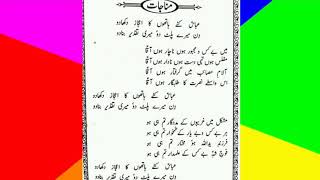 مناجات
عباسؑ کٹے ہاتھوں کا اعجاز دکھادو
دن میرے پلٹ دو میری تقدیر بنادو
میں بے کس و مجبور ہوں ناچار ہوں آقا
مفلس ہوں تہی دست ہوں نادار ہوں آقا
آلام مصائب میں گرفتار ہوں آقا
اس واسطے نصرت کا طلبگار ہوں آقا
عباسؑ کٹے ہاتھوں کا اعجاز دکھادو
دن میرے پلٹ دو میری تقدیر بنادو
مشکل میں غریبوں کے مددگار تم ہی ہو
ہر بے کس و بے یار کے غمخوار تم ہی ہو
فرزند یداللہ ہو مختار تم ہی ہو
فوج شہؑ بے کس کے علمدار تم ہی ہو
عباسؑ کٹے ہاتھوں کا اعجاز دکھادو
دن میرے پلٹ دو میری تقدیر بنادو